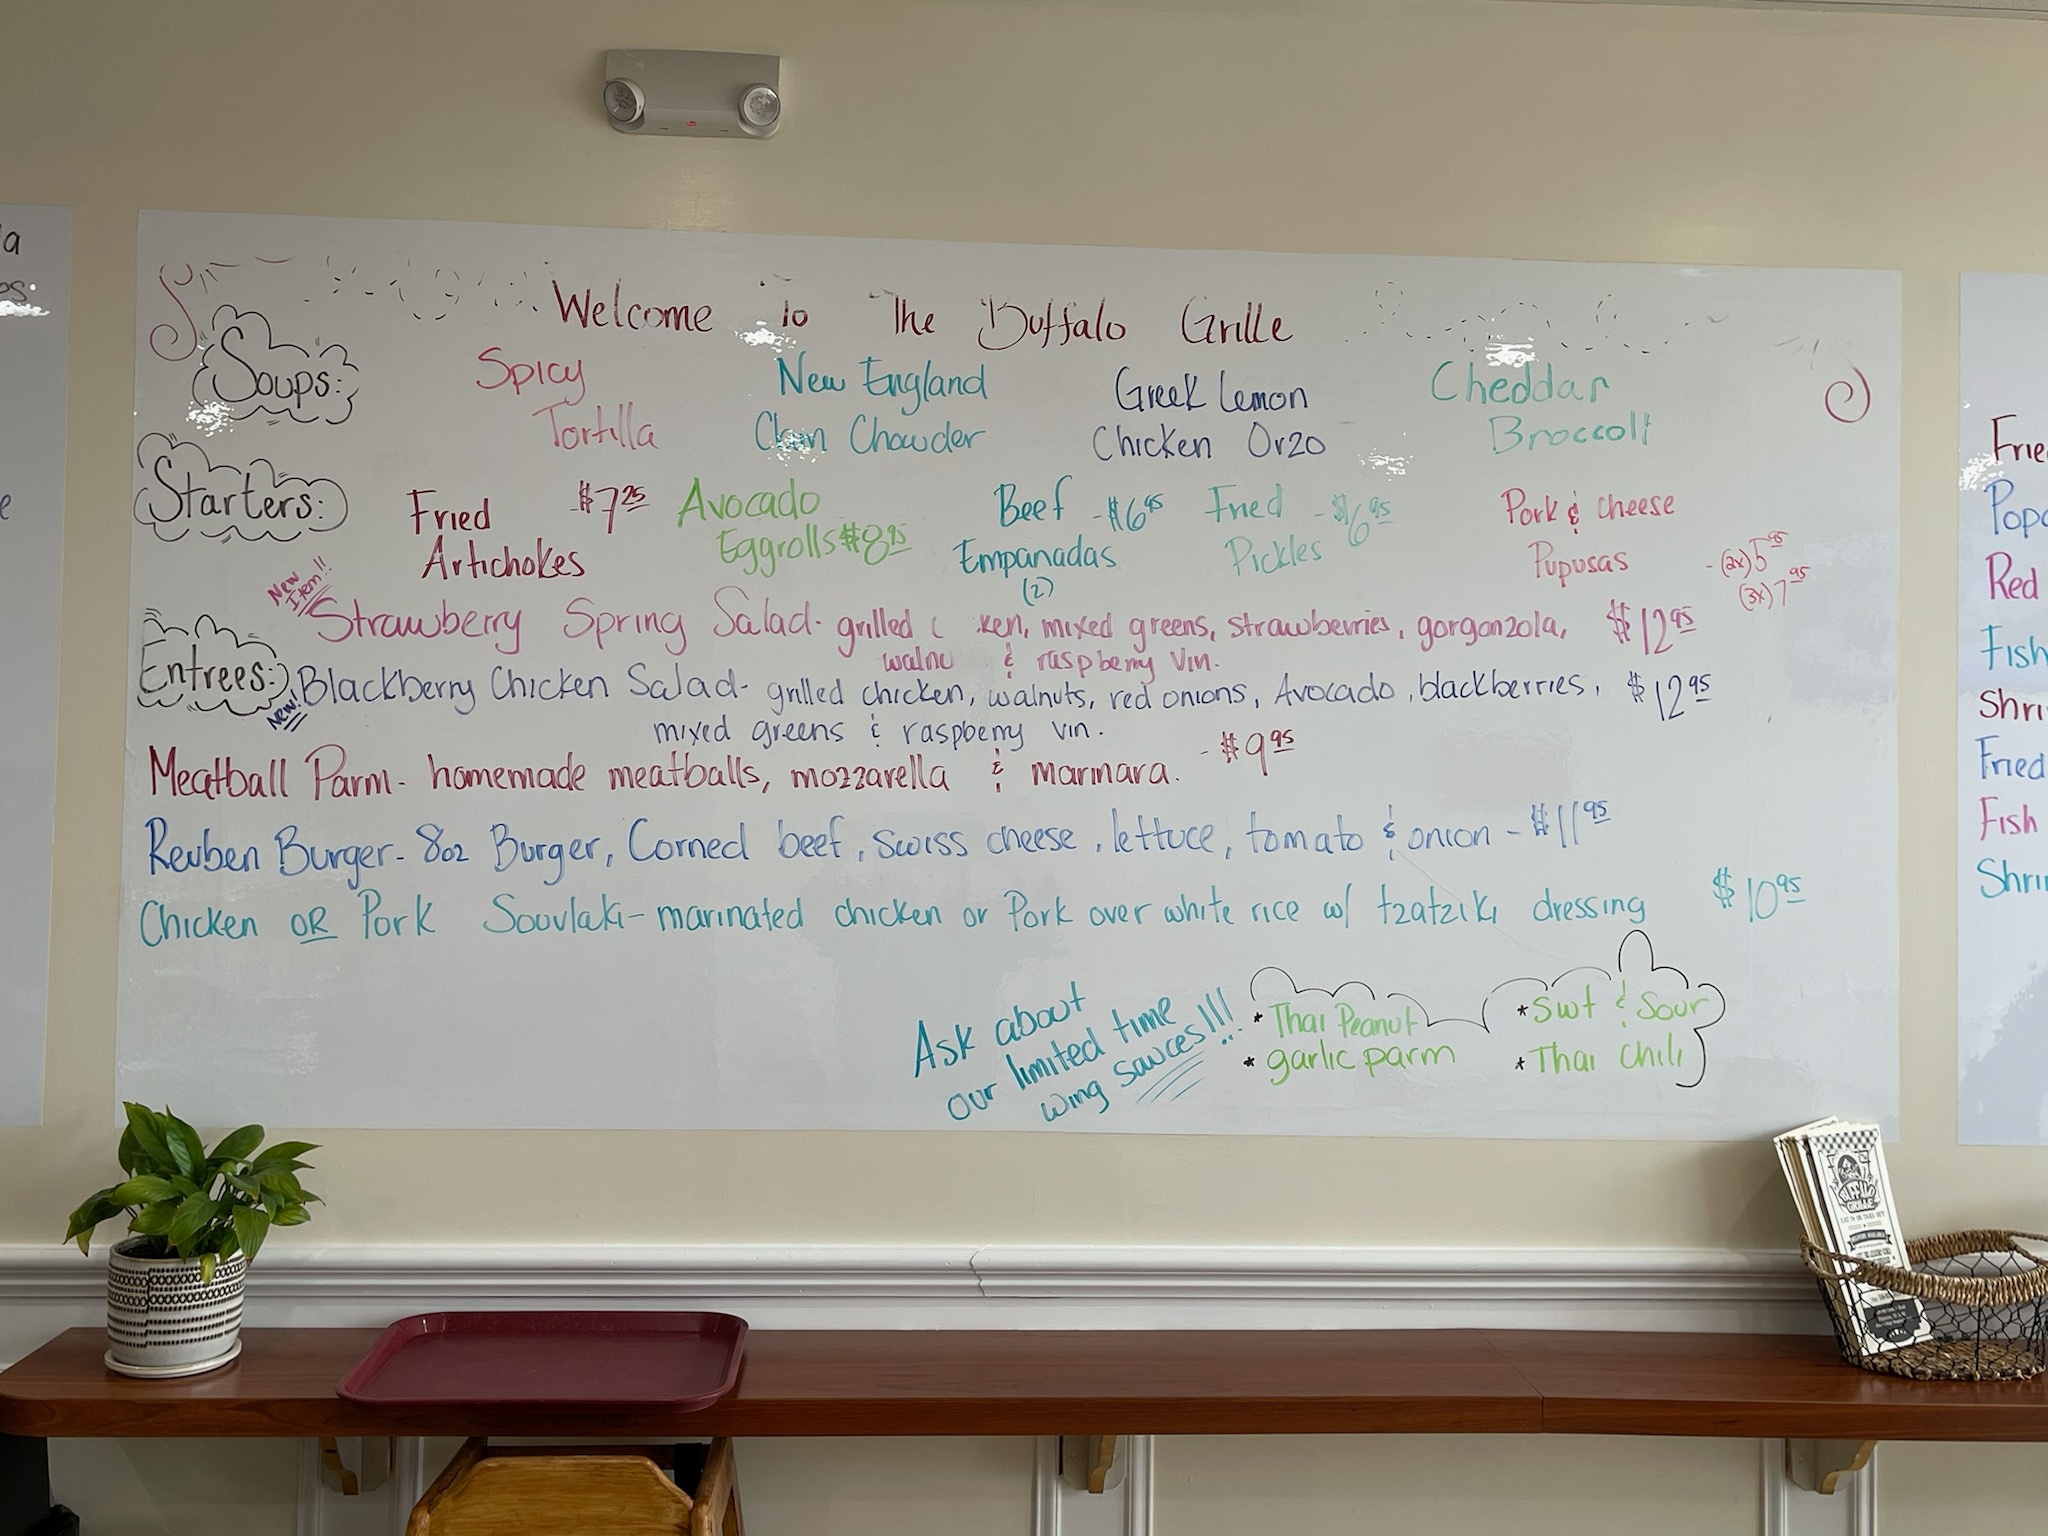 Welcome to The Buffalo Grille
Soups:
Spicy Tortilla
New England Clam Chowder
Greek Lemon Chicken Orzo
Cheddar Broccoli
Starters:
Fried Artichokes - $7.25
Avocado Eggrolls $8.95
Beef Empanadas (2) - $6.95
Fried Pickles - $6.95
Pork & cheese Pupusas - (2x) 5.95
(3x) 7.95
Entrees:
New Item!!
Strawberry Spring Salad- grilled ken, mixed greens, strawberries, gorgonzola, $12.95
walnu & raspberry vin.
New!
Blackberry Chicken Salad- grilled chicken, walnuts, red onions, Avocado, blackberries, $12.95
mixed greens & raspberry vin.
Meatball Parm- homemade meatballs, mozzarella & marinara. - $9.95
Reuben Burger- 8oz Burger, Corned beef, swiss cheese, lettuce, tomato & onion - $11.95
Chicken OR Pork Souvlaki- marinated chicken or Pork over white rice w/ tzatziki dressing $10.95
Ask about
our limited time
wing sauces!!!
* Thai Peanut
* garlic parm
* Swt & Sour
* Thai Chili
Fried
Red
Fish
Fried
Fish
BUFFALO
GRILLE
EAT IN OR TAKE OUT